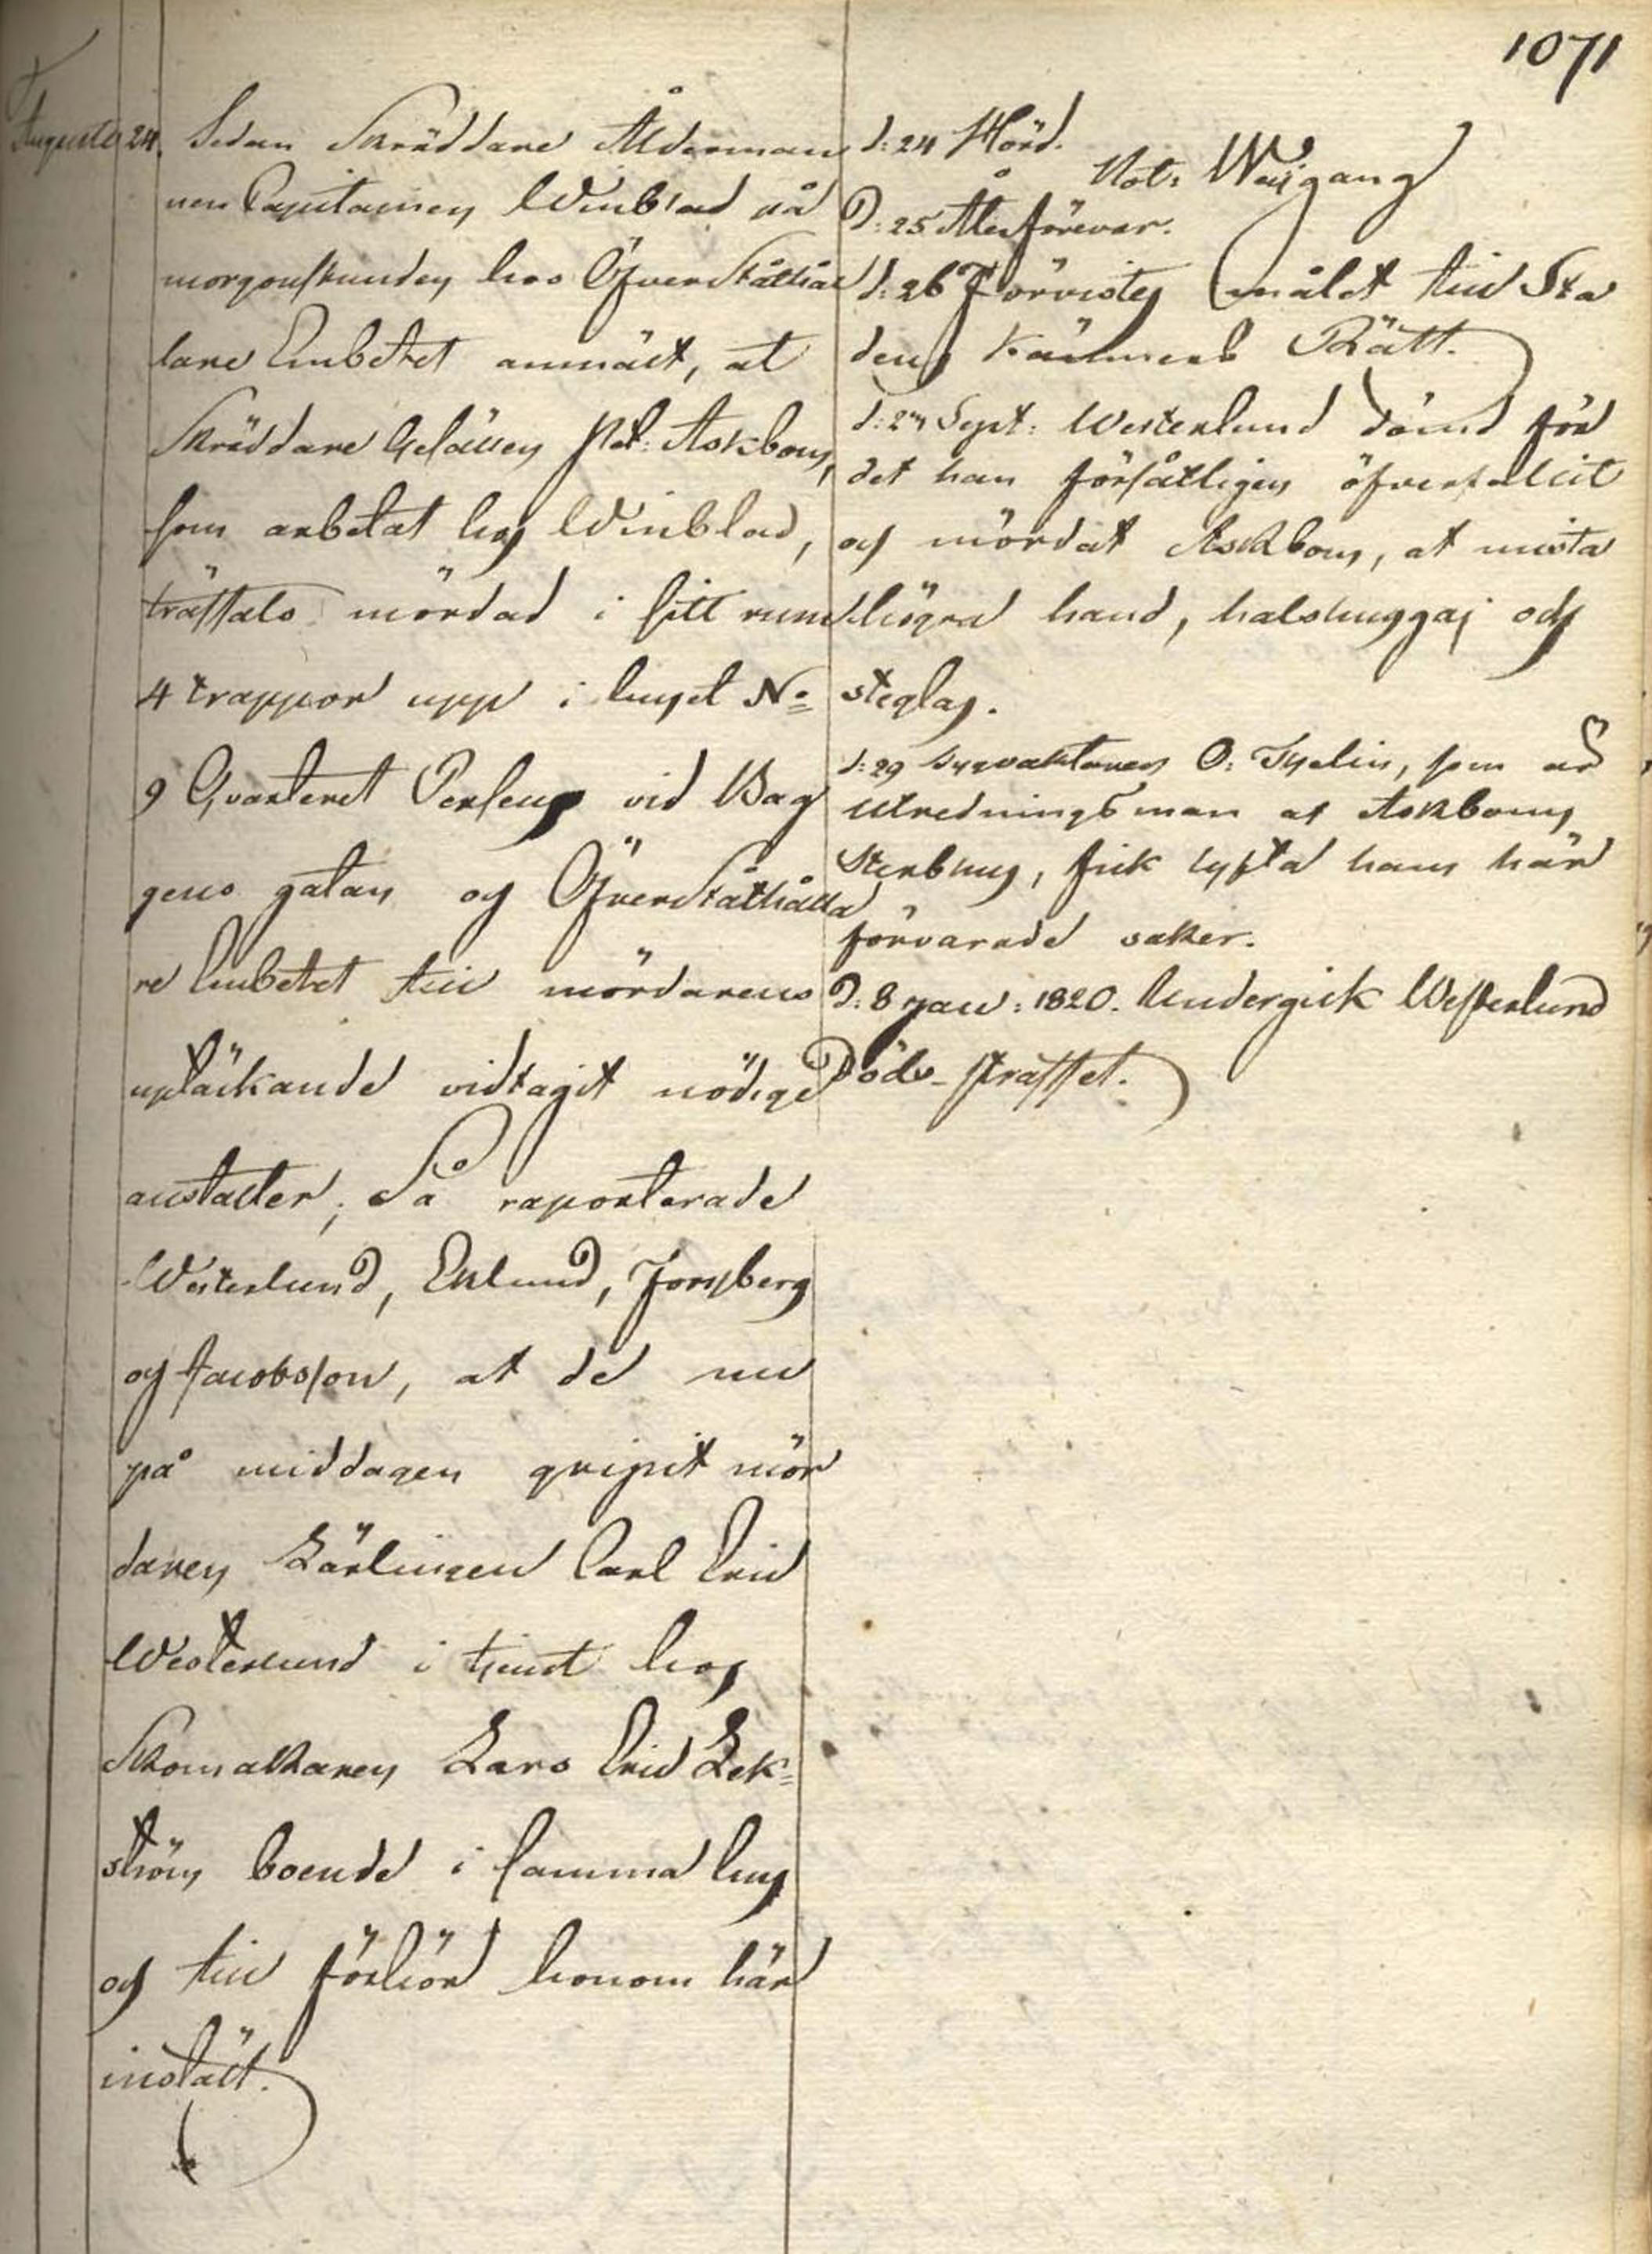 1071
Augusti 24.
Sedan Skräddare Ålderman
nen Capitainen Winblad på
morgonstunden hos Öfverståthål
lare Embetet anmält, at
Skräddare Gesällen Askbom,
som arbetat hos Winblad,
träffats mördad i sitt rum
4 trappor upp i huset No
9 Qvarteret Perseus vid Bag
gens gatan och Öfverståthålla
re Embetet till mördarens
uptäckande vidtagit nödige
anstalter; Så raporterade
Westerlund, Eklund, Forssberg
och Jacobsson, at de nu
på middagen gripit mör
daren Lärlingen Carl Eric
Westerlund i tjenst hos
Skomakaren Lars Eric Lek=
ström boende i samma hus
och till förhör honom här
instält.
d: 24 Hörd.
Not: Weigang
D: 25 Åter förevar.
d: 26 Förvistes målet till Sta
dens Kämners Rätt.
d: 27 Sept: Westerlund dömd för
det han försåtligen öfverfallit
och mördat Askbom, at mista
högra hand, halshuggas och
steglas.
d: 29 O: Thelin, som är
Utredningsman af Askboms
Sterbhus, fick lyfta hans här
förvarade saker.
D: 8 Jan: 1820. Undergick Westerlund
Döds-straffet.